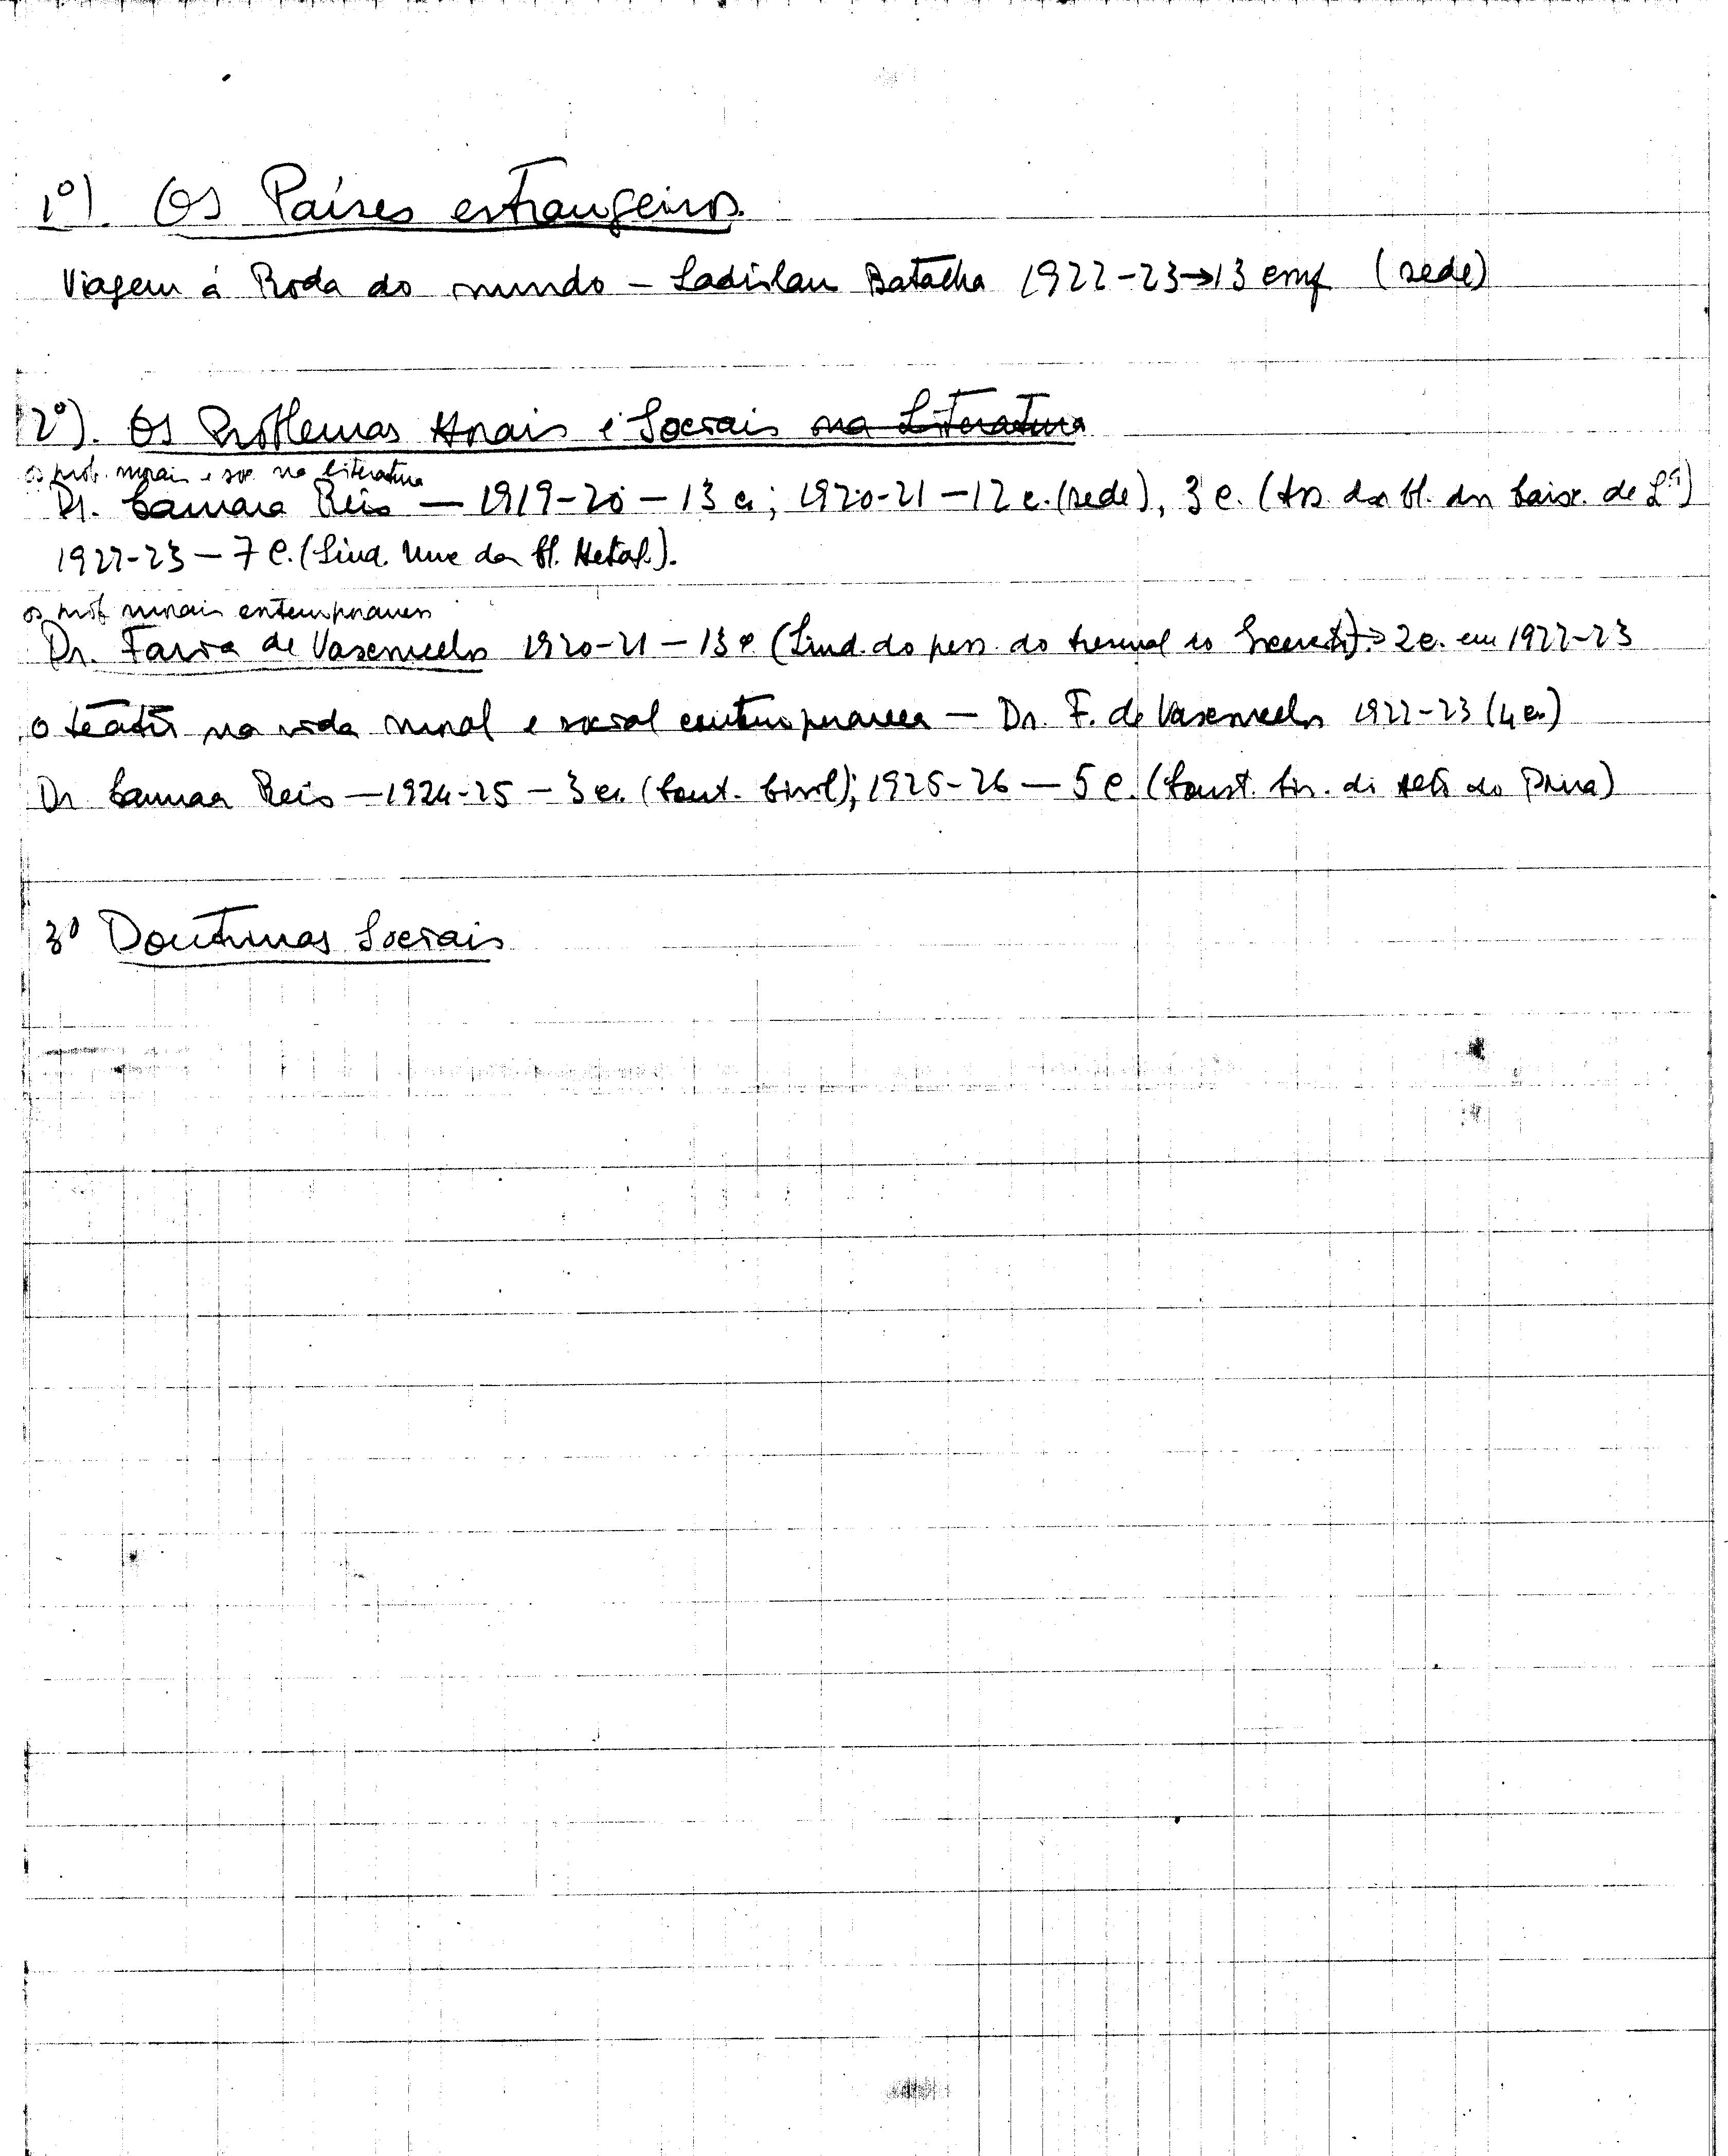 1º). Os Países estrangeiros.
Viagem á Roda do mundo – Ladislau Batalha 1922-23→13 conf (sede)
2º). Os Problemas Morais e Sociais na Literatura
os prob. morais e soc. na literatura
Dr. Camara Reis — 1919-20 – 13 c; 1920-21 – 12 c. (sede), 3 c. (Ass. dos de Lª)
1922-23 – 7 c. (Sind. Metal.).
os prob morais contemporaneos
Dr. Faria de Vasconcelos 1920-21 – 13 c (Sind. do pess. do → 2 c. em 1922-23
O teatro na vida moral e social contemporanea — Dr. F. de Vasconcelos 1922-23 (4 c.)
Dr Camara Reis — 1924-25 – 3 c. (Const. Civil); 1925-26 — 5 c. (Const. Civ.
3º Doutrinas Sociais